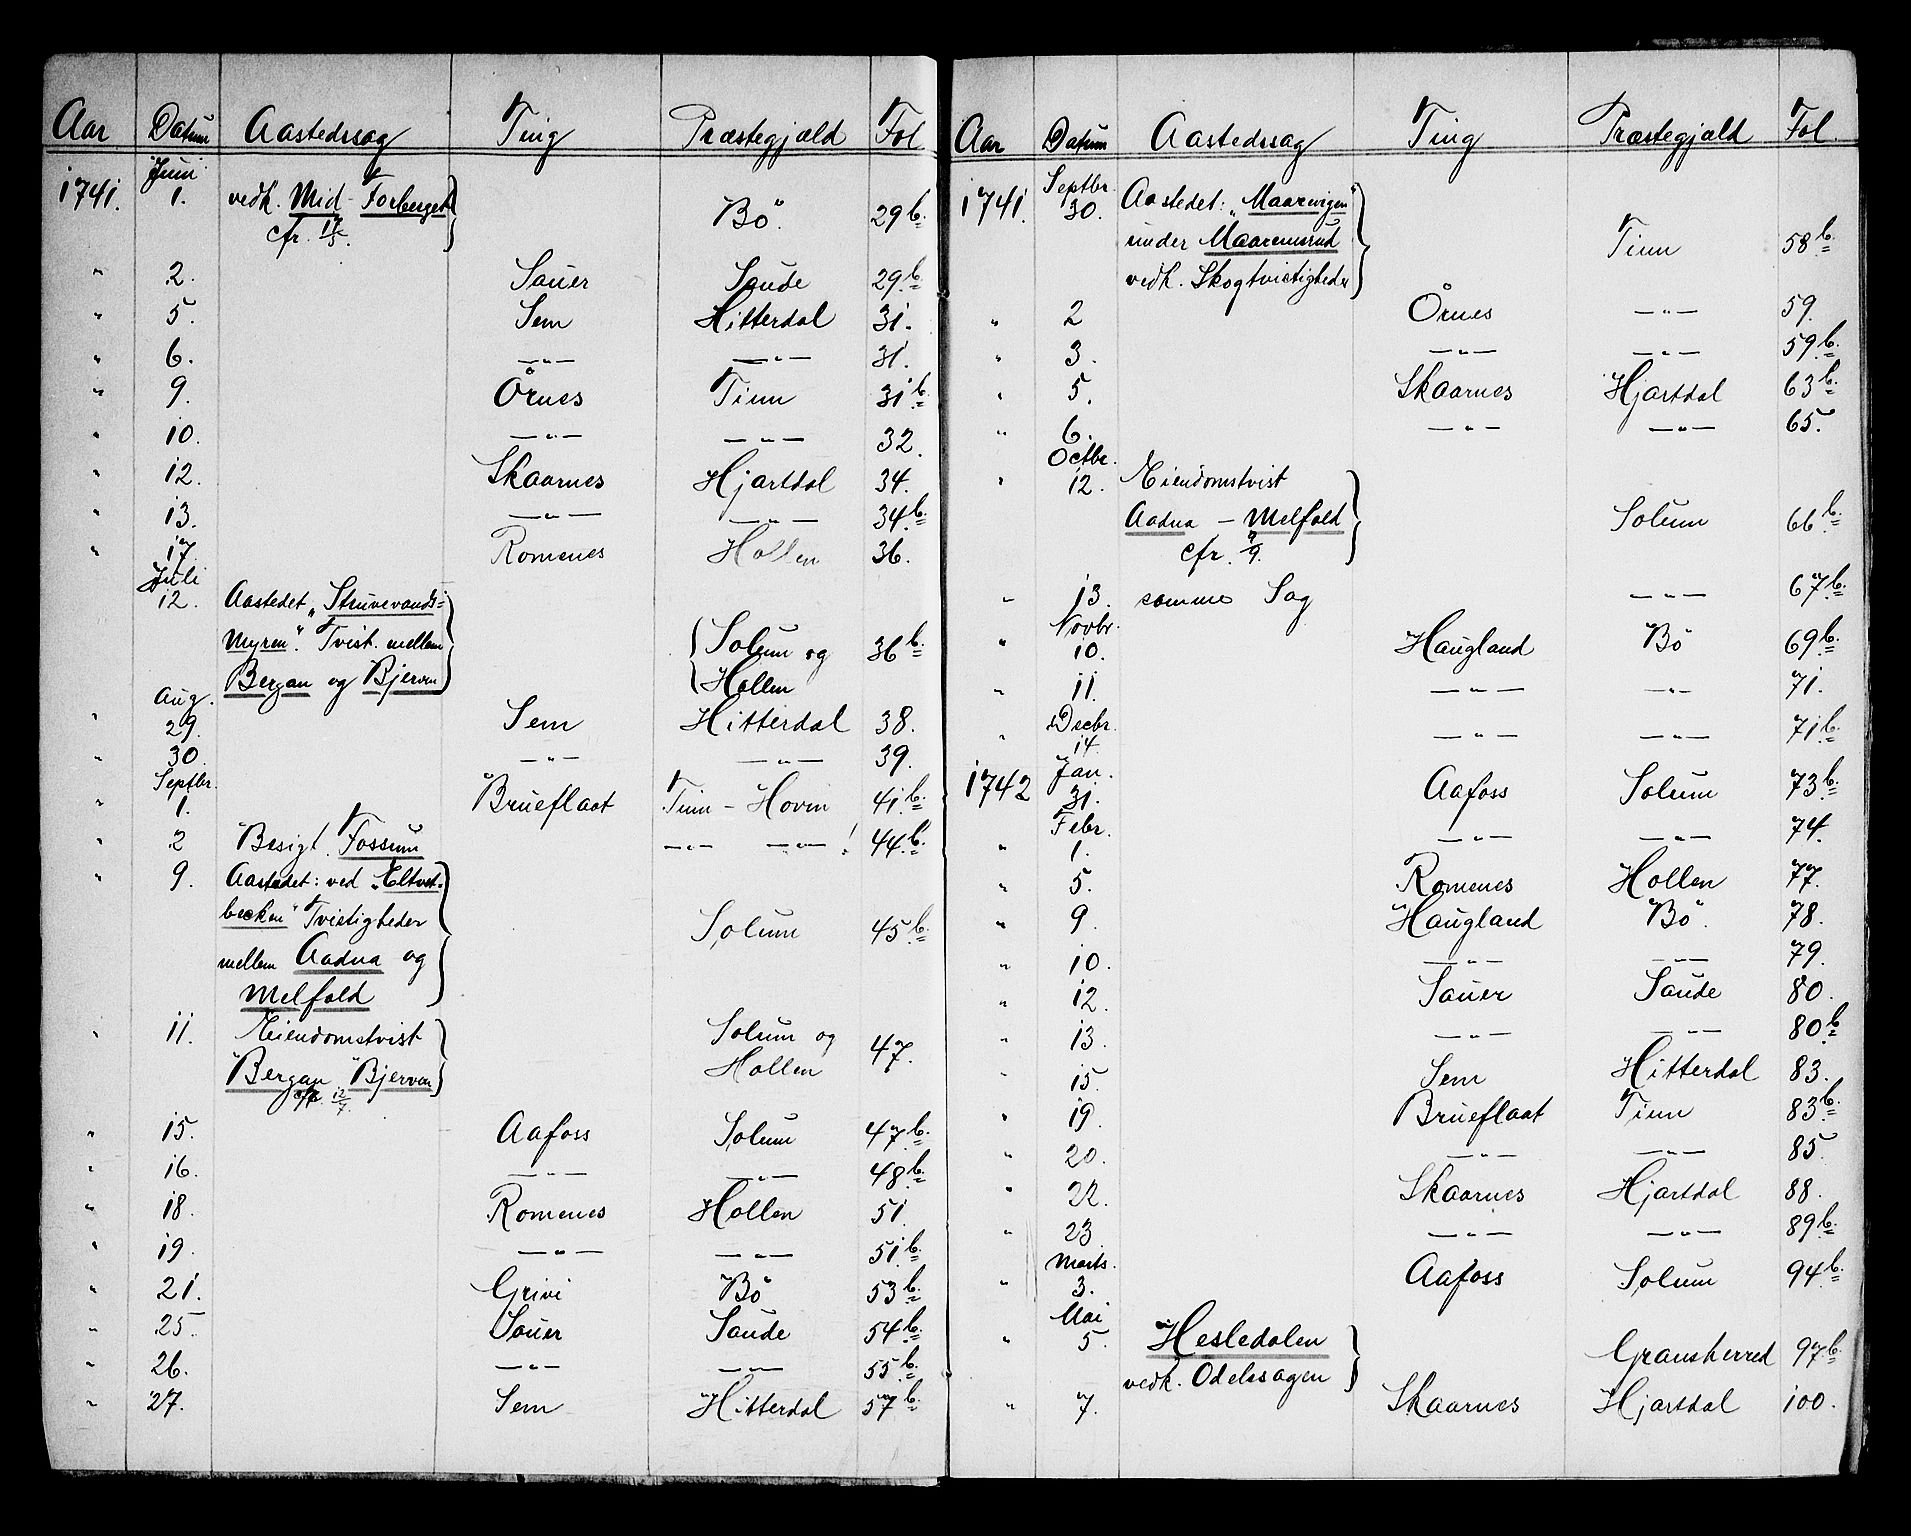 Aar Datum Aastedssag Ting Præstegjæld Fol
1741. Juni 1. vedk. Mid-Forberget Bö. 29 b.
cfr. 17/5.
" 2. Sauer Saude 29 b.
" 5. Sem Hitterdal 31.
" 6. —"— —"— 31.
" 9. Örnes Tinn 31 b.
" 10. —"— —"— 32.
" 12. Skaarnes Hjartdal 34.
" 13. —"— —"— 34 b.
" 17. Romenes Hollen 36.
Juli
12. Aastedet „Struvevands-
myren". Tvist mellem Solum og 36 b.
Bergan og Bjerven Hollen
Aug.
" 29. Sem Hitterdal 38.
" 30. —"— —"— 39.
Septbr.
" 1. Brueflaat Tinn - Hovin 41 b.
" 2 Besigt. Fossum —"— —"—! 44 b.
" 9. Aastedet: ved „Eltvet-
becken" Tvistigheder Solum 45 b.
mellem Aadna og
Melfald
" 11. Eiendomstvist Solum og 47.
Bergan Bjerven Hollen
cfr. 12/7.
" 15. Aafoss Solum 47 b.
" 16. —"— —"— 48 b.
" 18. Romenes Hollen 51.
" 19. —"— —"— 51 b.
" 21. Grivi Bö 53 b.
" 25. Sauer Saude 54 b.
" 26. —"— —"— 55 b.
" 27. Sem Hitterdal 57 b.
Aar Datum Aastedssag Ting Præstegjæld Fol.
1741. Septbr. 30. Aastedet: „Maarvigen"
under Maaremsrud Tinn 58 b.
vedk. Skogtvistigheder
" 2 Örnes —"— 59.
" 3. —"— —"— 59 b.
" 5. Skaarnes Hjartdal 63 b.
" 6. —"— —"— 65.
Octbr.
" 12. Eiendomstvist
Aadna - Melfald Solum 66 b.
cfr. 9/9.
" 13. samme Sag —"— 67 b.
Novbr.
" 10. Haugland Bö 69 b.
" 11. —"— —"— 71.
Decbr.
" 14. —"— —"— 71 b.
1742 Jan. 31. Aafoss Solum 73 b.
Febr.
" 1. —"— —"— 74.
" 5. Romenes Hollen 77.
" 9. Haugland Bö. 78.
" 10. —"— —"— 79.
" 12. Sauer Saude 80.
" 13. —"— —"— 80 b.
" 15. Sem Hitterdal 83.
" 19. Brueflaat Tinn 83 b.
" 20. —"— —"— 85.
" 22. Skaarnes Hjartdal 88.
" 23. —"— —"— 89 b.
Marts.
" 3. Aafoss Solum 94 b.
Mai
" 5. Hesledalen Gransherred 97 b.
vedk. Odelssagen
" 7. Skaarnes Hjartdal 100.